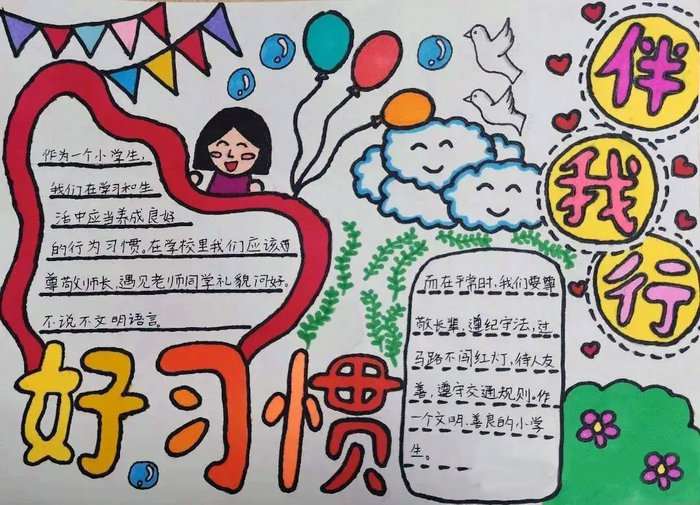 伴我行
作为一个小学生,
我们在学习和生
活中应当养成良好
的行为习惯。在学校里我们应该
尊敬师长,遇见老师同学礼貌问好。
不说不文明语言。
好习惯
而在平常时,我们要尊
敬长辈,遵纪守法,过
马路不闯红灯,待人友
善,遵守交通规则。作
一个文明、善良的小学
生。